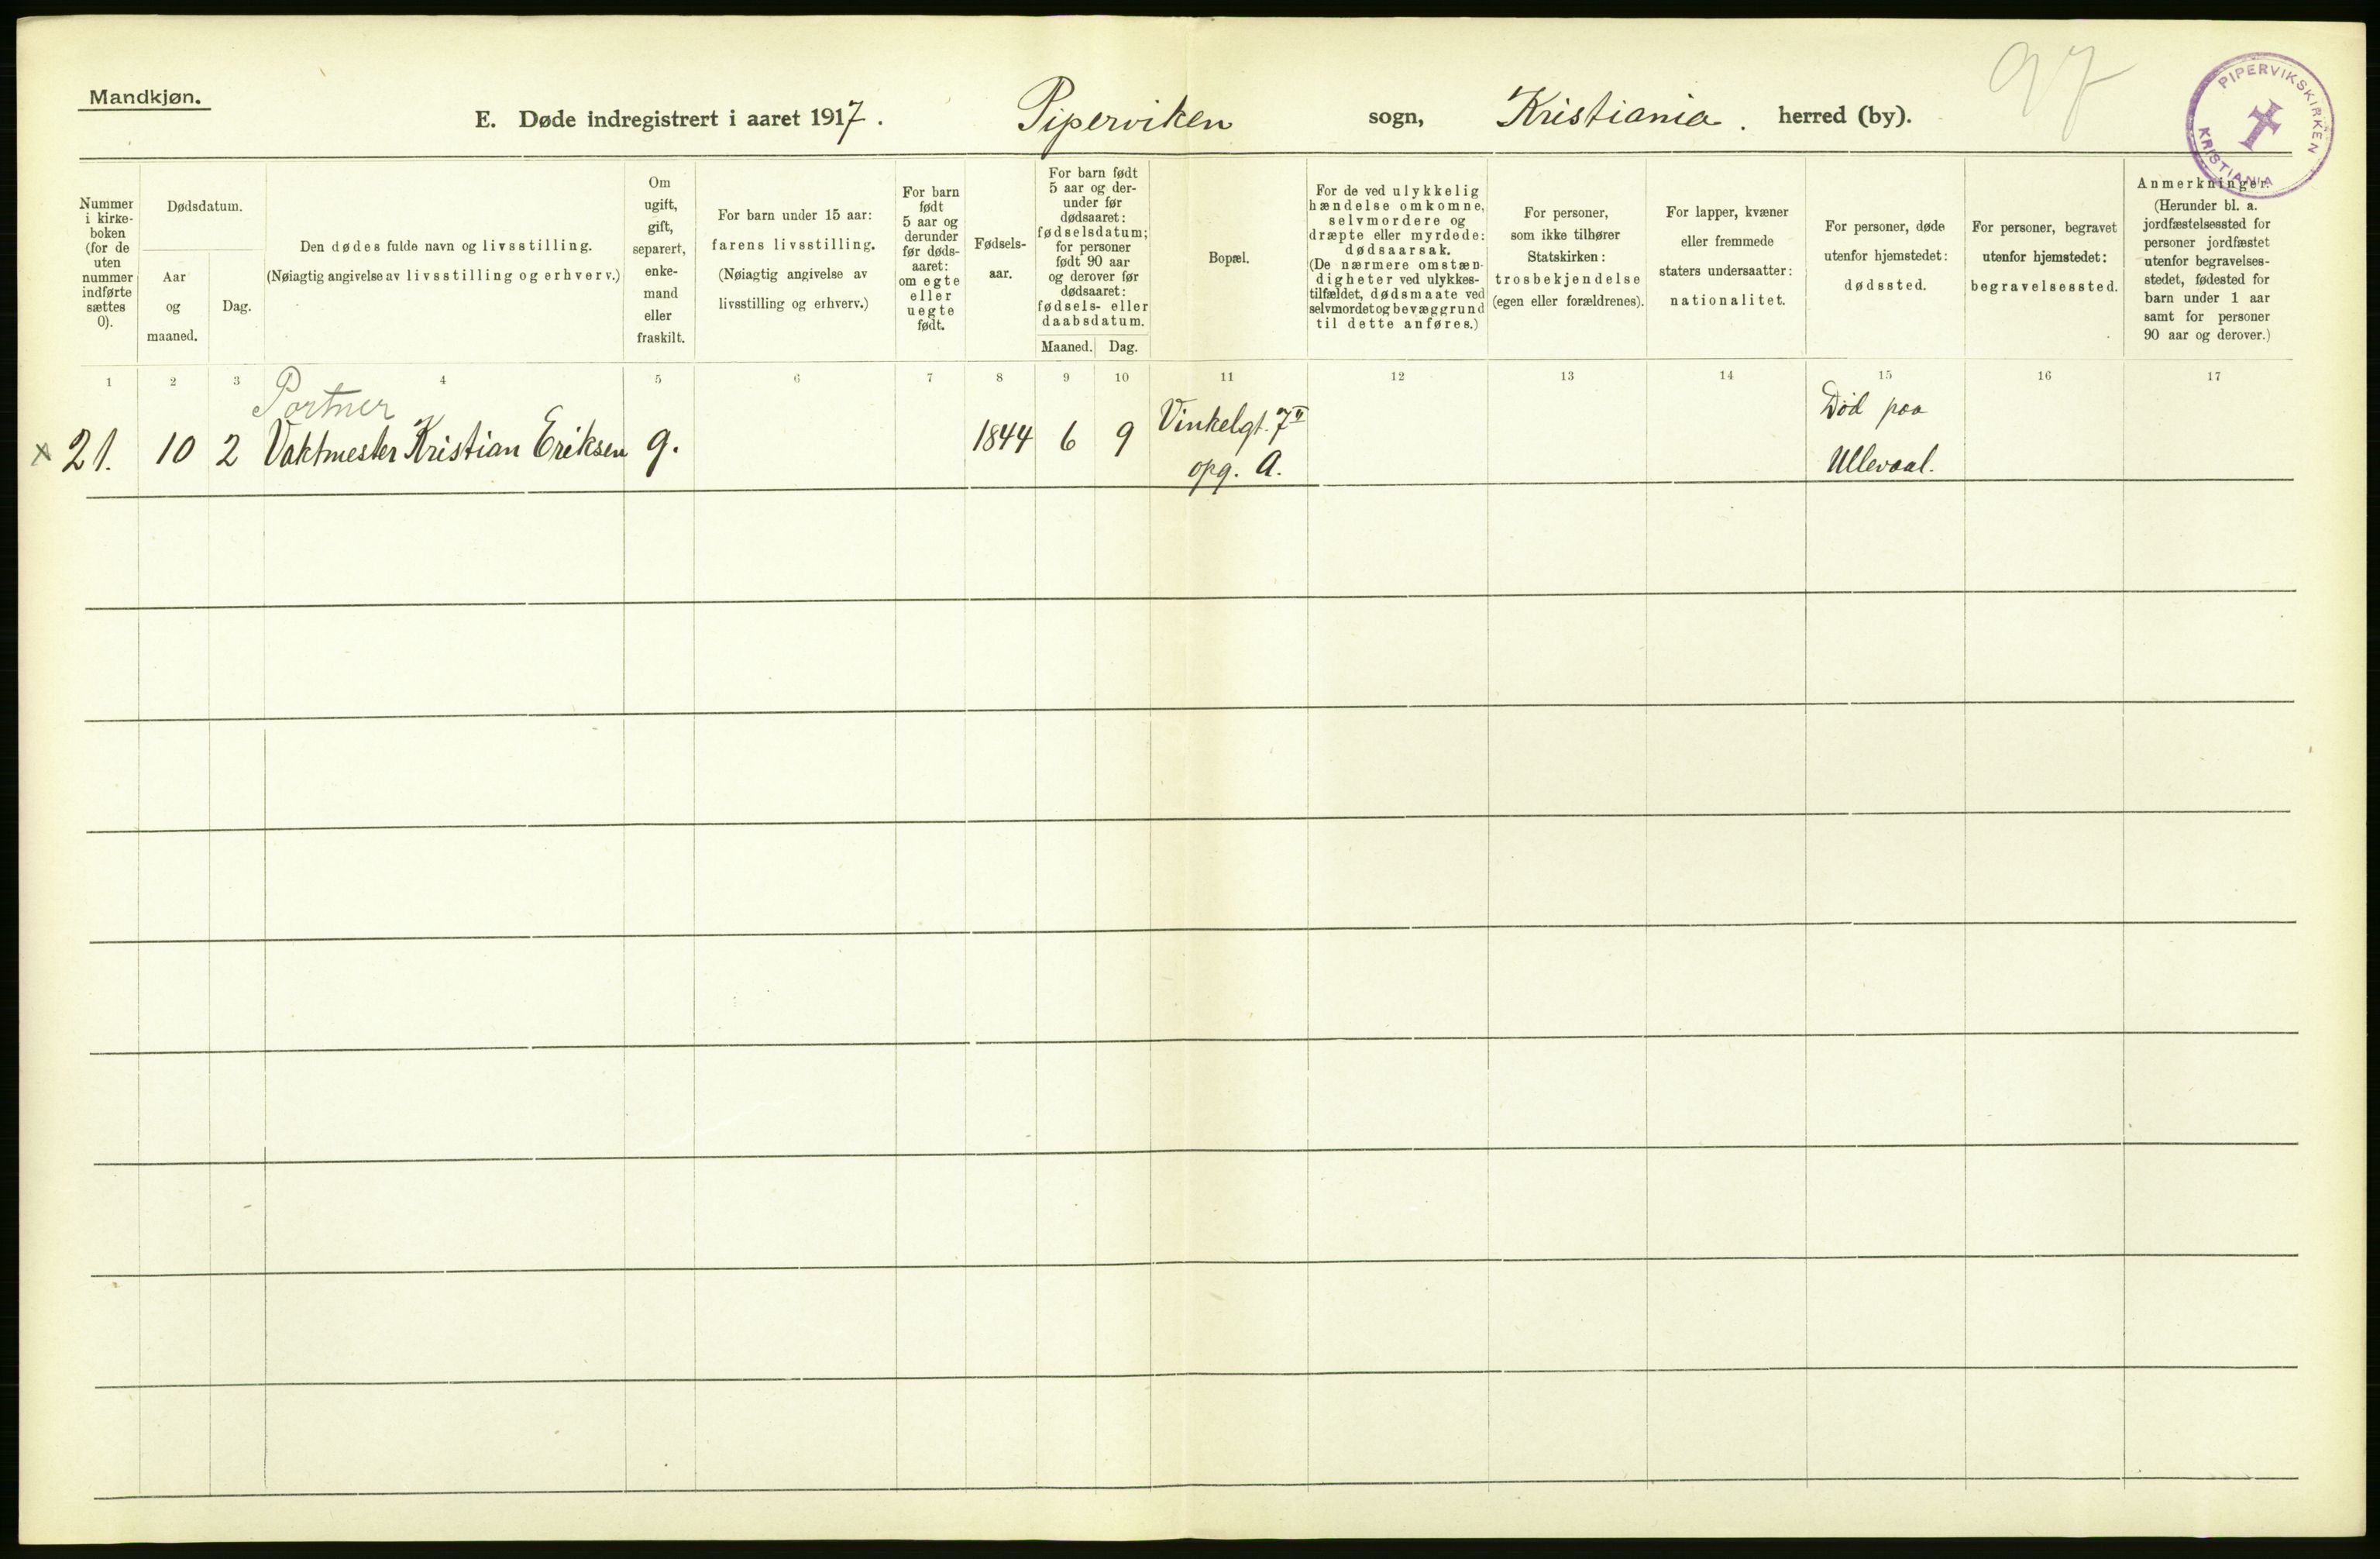 97
PIPERVIKSKIRKEN
KRISTIANIA
Mandkjøn.
E. Døde indregistrert i aaret 1917. Piperviken sogn, Kristiania. herred (by).
Nummer
i kirke-
boken
(for de
uten
nummer
indførte
sættes
0).
Dødsdatum.
Aar
og
maaned.
Dag.
Den dødes fulde navn og livsstilling.
(Nøiagtig angivelse av livsstilling og erhverv.)
Om
ugift,
gift,
separert,
enke-
mand
eller
fraskilt.
For barn under 15 aar:
farens livsstilling.
(Nøiagtig angivelse av
livsstilling og erhverv.)
For barn
født
5 aar og
derunder
før døds-
aaret:
om egte
eller
uegte
født.
Fødsels-
aar.
For barn født
5 aar og der-
under før
dødsaaret:
fødselsdatum;
for personer
født 90 aar
og derover før
dødsaaret:
fødsels- eller
daabsdatum.
Maaned. Dag.
Bopæl.
For de ved ulykkelig
hændelse omkomne,
selvmordere og
dræpte eller myrdede:
dødsaarsak.
(De nærmere omstæn-
digheter ved ulykkes-
tilfældet, dødsmaate ved
selvmordet og bevæggrund
til dette anføres.)
For personer,
som ikke tilhører
Statskirken:
trosbekjendelse
(egen eller forældrenes).
For lapper, kvæner
eller fremmede
staters undersaatter:
nationalitet.
For personer, døde
utenfor hjemstedet:
dødssted.
For personer, begravet
utenfor hjemstedet:
begravelsessted.
Anmerkninger.
(Herunder bl. a.
jordfæstelsessted for
personer jordfæstet
utenfor begravelses-
stedet, fødested for
barn under 1 aar
samt for personer
90 aar og derover.)
1 2 3 4 5 6 7 8 9 10 11 12 13 14 15 16 17
Portner
x 21. 10 2 Vaktmester Kristian Eriksen g. 1844 6 9 Vinkelgt. 7 II
opg. A.
Død paa
Ullevaal.